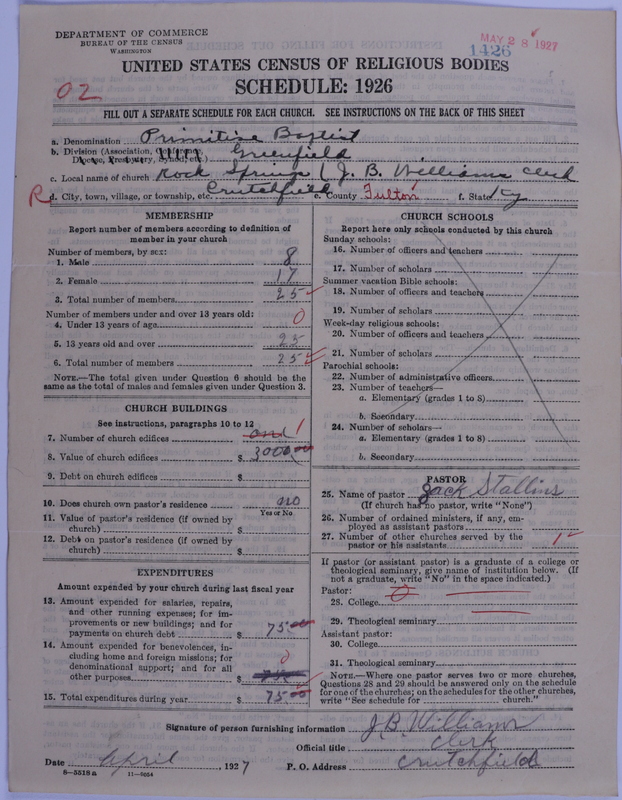 DEPARTMENT OF COMMERCE
BUREAU OF THE CENSUS
WASHINGTON
MAY 28 1927
1426
UNITED STATES CENSUS OF RELIGIOUS BODIES
SCHEDULE: 1926
02
FILL OUT A SEPARATE SCHEDULE FOR EACH CHURCH. SEE INSTRUCTIONS ON THE BACK OF THIS SHEET
a. Denomination Primitive Baptist
b. Division (Association, Conference, Diocese, Presbytery, Synod, etc.) Greenfield
c. Local name of church Rock Springs (J. B. Williams clerk
R d. City, town, village, or township, etc. Crutchfield e. County Fulton f. State Ky
MEMBERSHIP
Report number of members according to definition of
member in your church
Number of members, by sex:
1. Male 8
2. Female 17
3. Total number of members 25
Number of members under and over 13 years old:
4. Under 13 years of age 0
5. 13 years old and over 25
6. Total number of members 25
NOTE.—The total given under Question 6 should be the
same as the total of males and females given under Question 3.
CHURCH BUILDINGS
See instructions, paragraphs 10 to 12
7. Number of church edifices one 1
8. Value of church edifices $ 3000.00
9. Debt on church edifices $
10. Does church own pastor's residence no
Yes or No
11. Value of pastor's residence (if owned by
church) $
12. Debt on pastor's residence (if owned by
church) $
EXPENDITURES
Amount expended by your church during last fiscal year
13. Amount expended for salaries, repairs,
and other running expenses; for im-
provements or new buildings; and for
payments on church debt $ 75.00
14. Amount expended for benevolences, in-
cluding home and foreign missions; for
denominational support; and for all
other purposes $ 0
15. Total expenditures during year $ 75.00
CHURCH SCHOOLS
Report here only schools conducted by this church
Sunday schools:
16. Number of officers and teachers
17. Number of scholars
Summer vacation Bible schools:
18. Number of officers and teachers
19. Number of scholars
Week-day religious schools:
20. Number of officers and teachers
21. Number of scholars
Parochial schools:
22. Number of administrative officers
23. Number of teachers—
a. Elementary (grades 1 to 8)
b. Secondary
24. Number of scholars—
a. Elementary (grades 1 to 8)
b. Secondary
PASTOR
25. Name of pastor Jack Stallins
(If church has no pastor, write "None")
26. Number of ordained ministers, if any, em-
ployed as assistant pastors
27. Number of other churches served by the
pastor or his assistants 1
If pastor (or assistant pastor) is a graduate of a college or
theological seminary, give name of institution below. (If
not a graduate, write "No" in the space indicated.)
Pastor:
28. College 0
29. Theological seminary
Assistant pastor:
30. College
31. Theological seminary
NOTE.—Where one pastor serves two or more churches,
Questions 28 and 29 should be answered only on the schedule
for one of the churches; on the schedules for the other churches,
write "See schedule for church."
Signature of person furnishing information J. B. Williams
Official title clerk
Date April, 1927 P. O. Address Crutchfield
8—5518a 11—9054